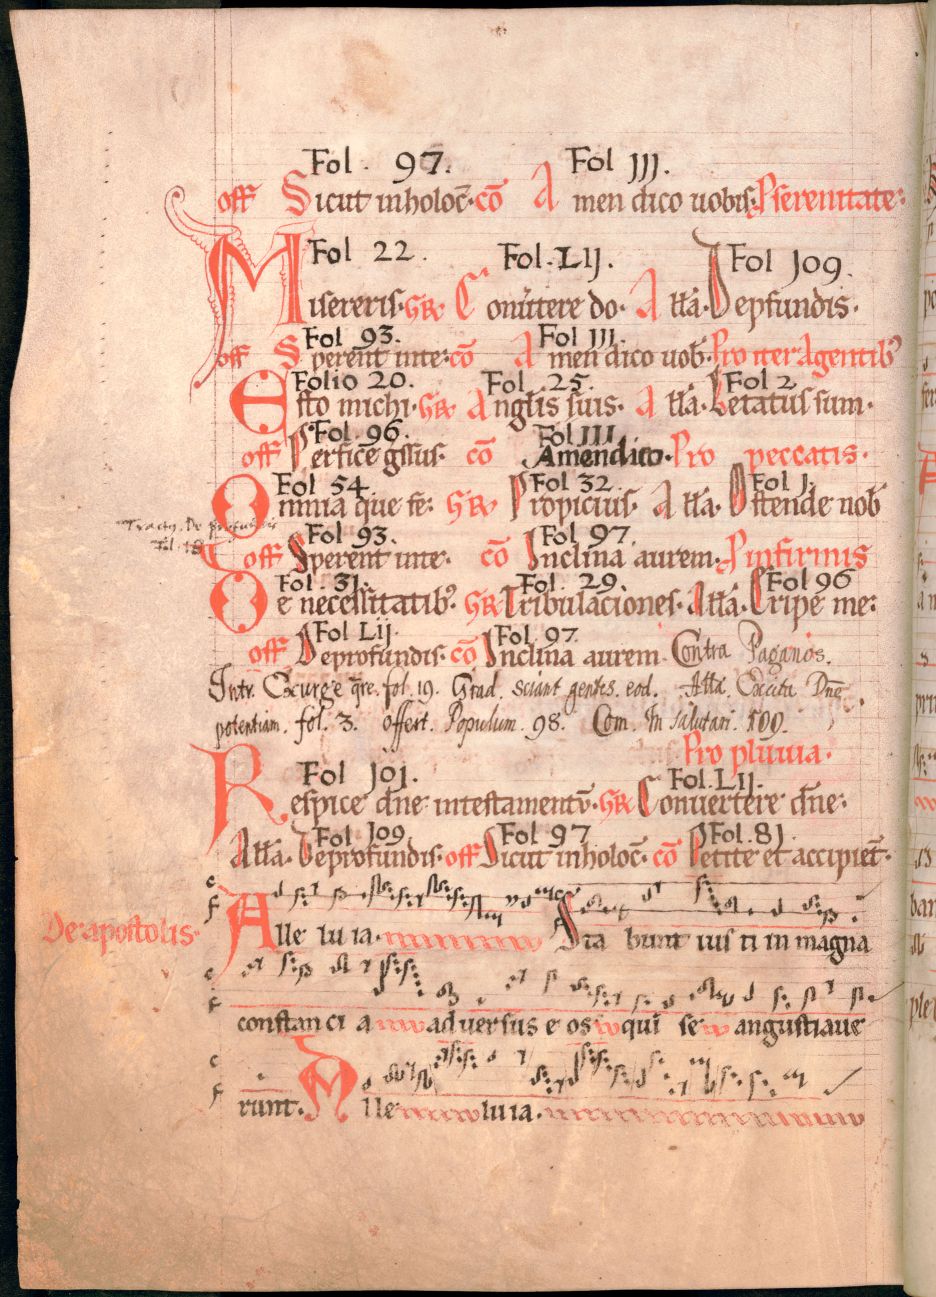 Fol. 97. Fol III.
off Sicut in holoc̄. cō Amen dico uobis. P serenitate:
Fol 22. Fol. LIJ. Fol J09.
Misereris. GR Conu̅tere do. Alła. Depfundis.
Fol 93. Fol III.
off Sperent in te: cō Amen dico uob. Pro iter agentib9
Folio 20. Fol. 25. Fol 2
Esto michi. GR Anglis suis. Alła. Letatus sum.
Fol. 96. Fol III
off Perfice gssus. cō Amen dico. Pro peccatis.
Fol 54. Fol 32. Fol J.
Omnia que fe: GR Propicius. Alła. Ostende nob
Tractg. De pfundis
Fol. 93. Fol 97.
off Sperent in te. cō Inclina aurem. P infirmis
Fol. 31. Fol. 29. Fol 96
De necessitatib9. GR Tribulaciones. Alła. Eripe me:
Fol LIJ. Fol. 97.
off Deprofundis. cō Inclina aurem. Contra Paganos.
Intr. Exurge q̄re. fol. 19. Grad. sciant gentes. eod. Alła. Excita Dn̄e
potentiam. fol. 3. offert. Populum. 98. Com. In salutari. 100.
Pro pluuia.
Fol J0J. Fol. LIJ.
Respice dn̄e in testamentū. GR Conuertere dn̄e.
Fol J09. Fol 97 Fol. 8J
Alła. Deprofundis. off Sicut in holoc̄. cō Petite et accipiet̄.
De apostolis. Alle lu ia. Sta bunt ius ti in magna
constan ci a aduersus e os qui se angustiaue
runt. Alle luia.